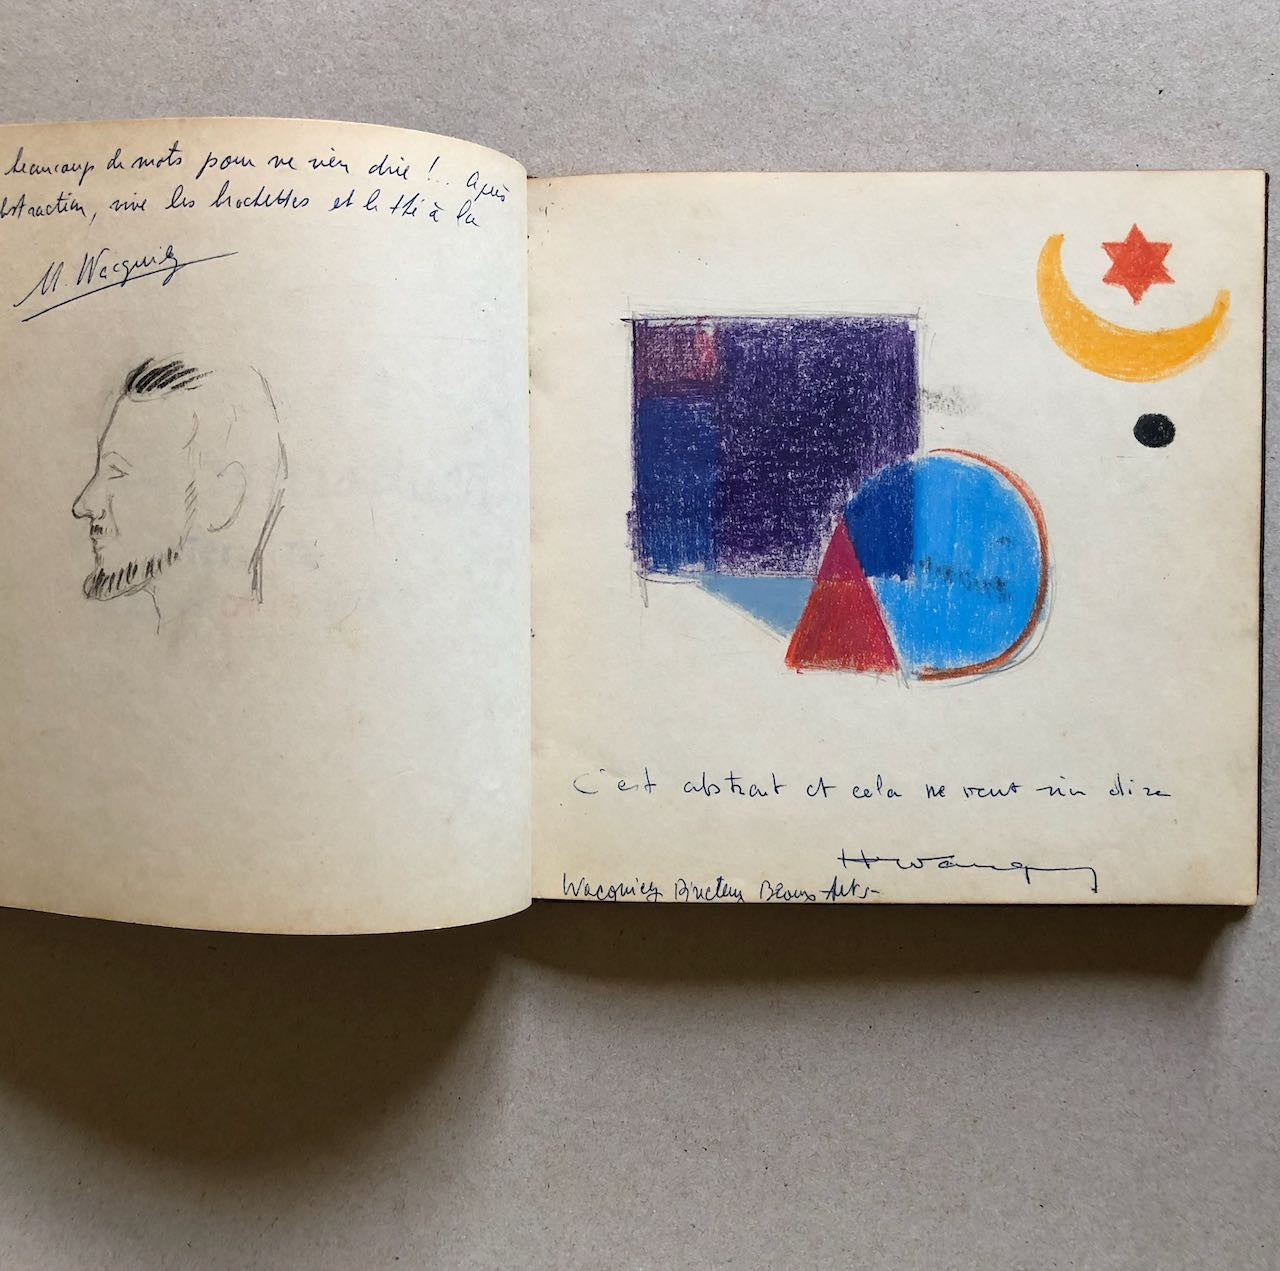 beaucoup de mots pour ne rien dire !.. Après
bstraction, vive les brochettes et le thé à la
M. Wacquiez
C'est abstrait et cela ne veut rien dire
Wacquiez Directeur Beaux Arts